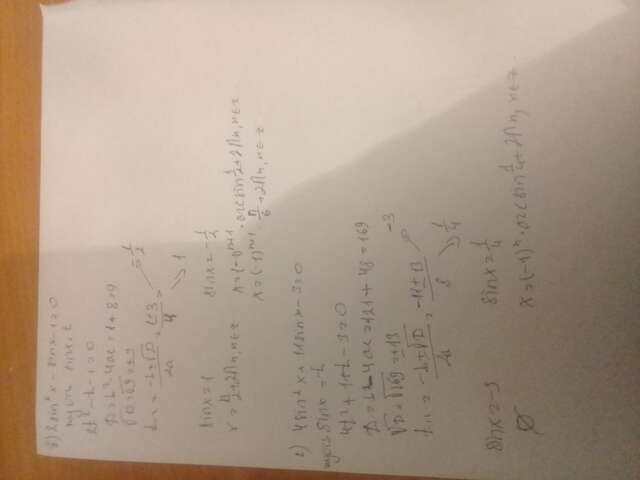 2sin²x - sinx - 1 = 0
пусть sinx = t
2t² - t - 1 = 0
D = b² - 4ac = 1 + 8 = 9
√D = √9 = ±3
t₁,₂ = (-b ± √D)/2a = (1 ± 3)/4 = -1/2
1
sinx = 1    sinx = -1/2
x = π/2 + 2πn, n∈z    x = (-1)ⁿ⁺¹ · arcsin 1/2 + 2πn, n∈z
x = (-1)ⁿ⁺¹ π/6 + 2πn, n∈z
4sin²x + 11sinx - 3 = 0
пусть sinx = t
4t² + 11t - 3 = 0
D = b² - 4ac = 121 + 48 = 169
√D = √169 = ±13
t₁,₂ = (-b ± √D)/2a = (-11 ± 13)/8
-3
1/4
sinx = -3    sinx = 1/4
∅    x = (-1)ⁿ · arcsin 1/4 + 2πn, n∈z